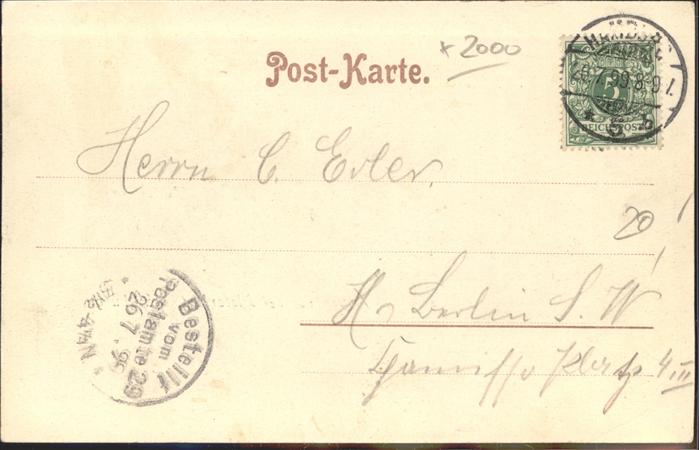 x 2000
Post-Karte.
HAMBURG
8-9 V.
* 5 b
5
REICHSPOST
Herrn C. Erler.
20
Berlin S. W
Chamisso Platz 4 III
Bestellt
vom
Postamte 29
26 7. 95